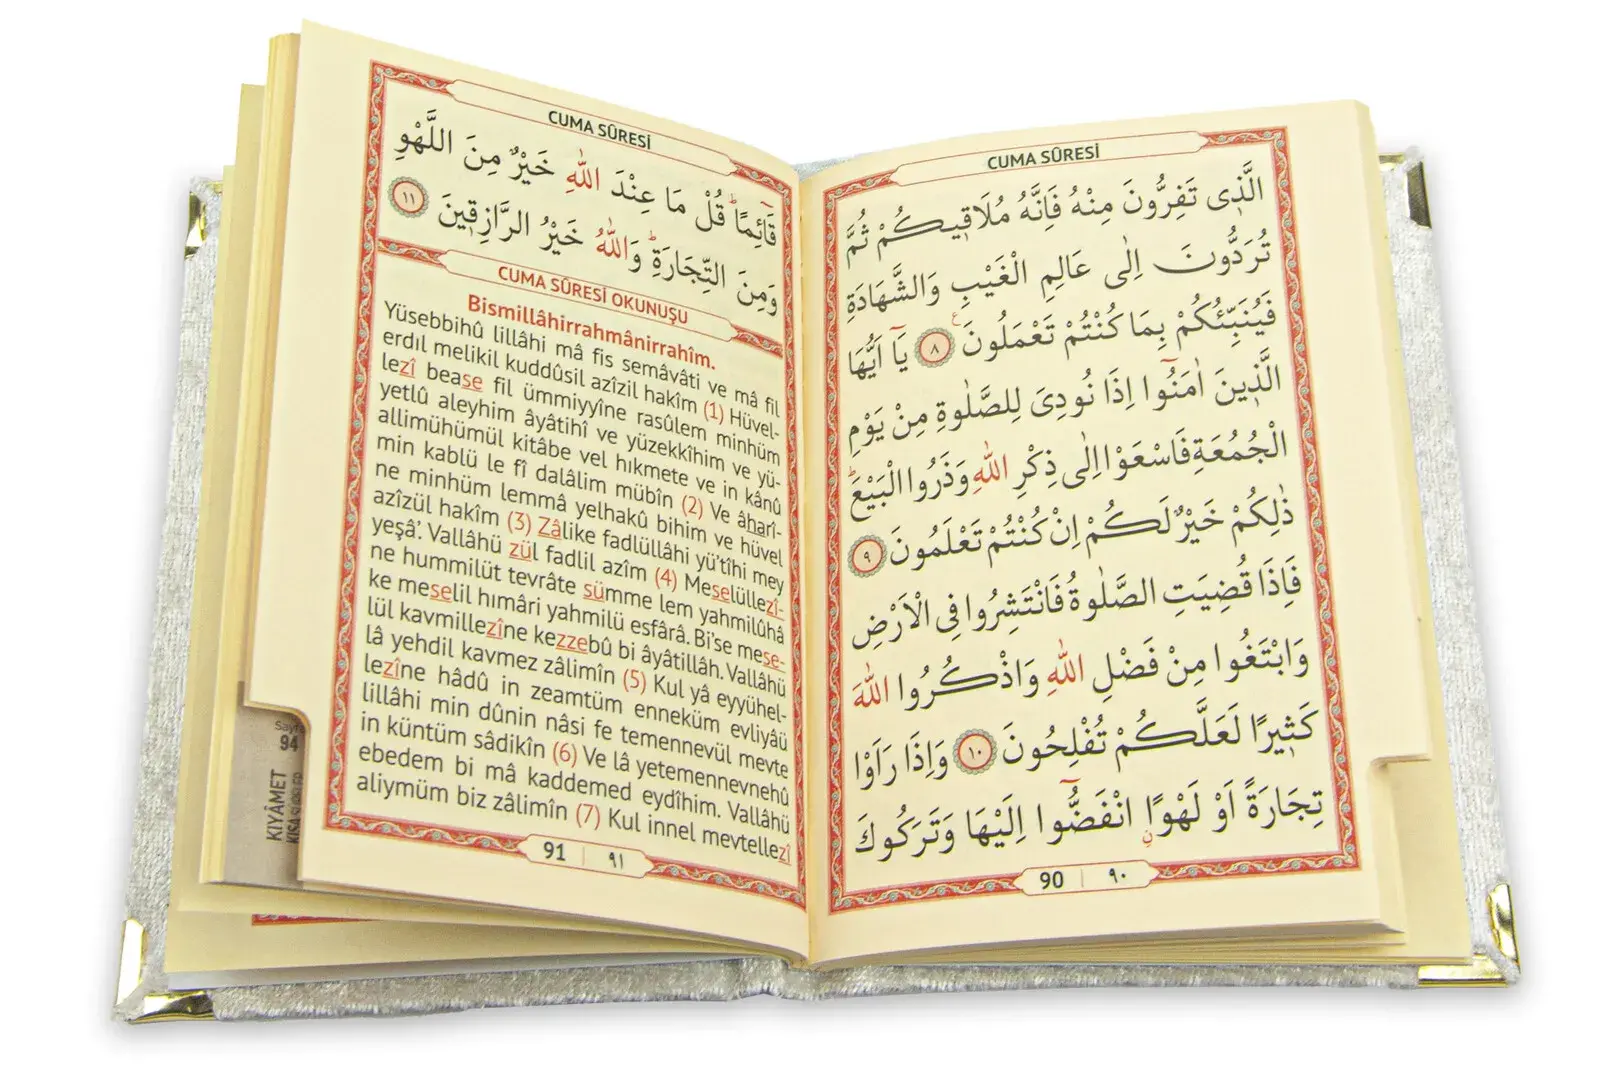 CUMA SÛRESİ
الَّذٖى تَفِرُّونَ مِنْهُ فَاِنَّهُ مُلَاقٖيكُمْ ثُمَّ
تُرَدُّونَ اِلٰى عَالِمِ الْغَيْبِ وَالشَّهَادَةِ
فَيُنَبِّئُكُمْ بِمَا كُنْتُمْ تَعْمَلُونَ ٨ يَٓا اَيُّهَا
الَّذٖينَ اٰمَنُٓوا اِذَا نُودِىَ لِلصَّلٰوةِ مِنْ يَوْمِ
الْجُمُعَةِ فَاسْعَوْا اِلٰى ذِكْرِ اللّٰهِ وَذَرُوا الْبَيْعَ
ذٰلِكُمْ خَيْرٌ لَكُمْ اِنْ كُنْتُمْ تَعْلَمُونَ ٩
فَاِذَا قُضِيَتِ الصَّلٰوةُ فَانْتَشِرُوا فِى الْاَرْضِ
وَابْتَغُوا مِنْ فَضْلِ اللّٰهِ وَاذْكُرُوا اللّٰهَ
كَثٖيرًا لَعَلَّكُمْ تُفْلِحُونَ ١٠ وَاِذَا رَاَوْا
تِجَارَةً اَوْ لَهْوًا انْفَضُّٓوا اِلَيْهَا وَتَرَكُوكَ
90 | ٩٠
CUMA SÛRESİ
قَٓائِمًا قُلْ مَا عِنْدَ اللّٰهِ خَيْرٌ مِنَ اللَّهْوِ
وَمِنَ التِّجَارَةِ وَاللّٰهُ خَيْرُ الرَّازِقٖينَ ١١
CUMA SÛRESİ OKUNUŞU
Bismillâhirrahmânirrahîm.
Yüsebbihû lillâhi mâ fis semâvâti ve mâ fil
erdıl melikil kuddûsil azîzil hakîm (1) Hüvel-
lezî bease fil ümmiyyîne rasûlem minhüm
yetlû aleyhim âyâtihî ve yüzekkîhim ve yü-
allimühümül kitâbe vel hıkmete ve in kânû
min kablü le fî dalâlim mübîn (2) Ve âharî-
ne minhüm lemmâ yelhakû bihim ve hüvel
azîzül hakîm (3) Zâlike fadlüllâhi yü'tîhi mey
yeşâ'. Vallâhü zül fadlil azîm (4) Meselüllezî-
ne hummilüt tevrâte sümme lem yahmilûhâ
ke meselil hımâri yahmilü esfârâ. Bi'se mese-
lül kavmillezîne kezzebû bi âyâtillâh. Vallâhü
lâ yehdil kavmez zâlimîn (5) Kul yâ eyyühel-
lezîne hâdû in zeamtüm enneküm evliyâü
lillâhi min dûnin nâsi fe temennevül mevte
in küntüm sâdikîn (6) Ve lâ yetemennevnehû
ebedem bi mâ kaddemed eydîhim. Vallâhü
aliymüm biz zâlimîn (7) Kul innel mevtellezî
91 | ٩١
Sayfa
94
KIYÂMET
KISA